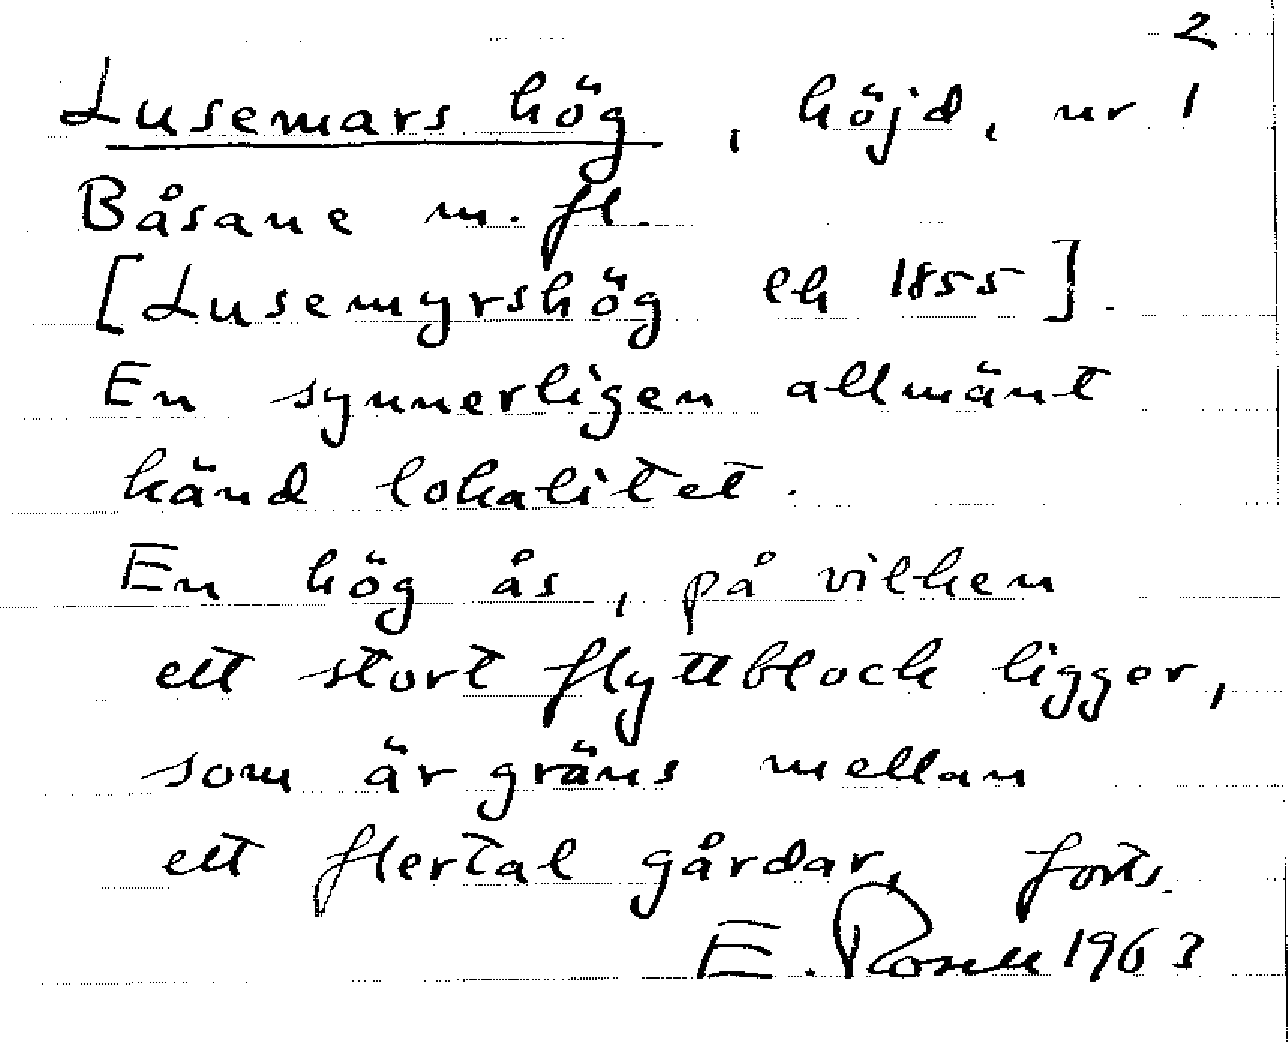 2
Lusemars hög, höjd, nr 1
Båsane m. fl.
[Lusemyrshög ek 1855].
En synnerligen allmänt
känd lokalitet.
En hög ås, på vilken
ett stort flyttblock ligger,
som är gräns mellan
ett flertal gårdar, forts.
E. Rosell 1963